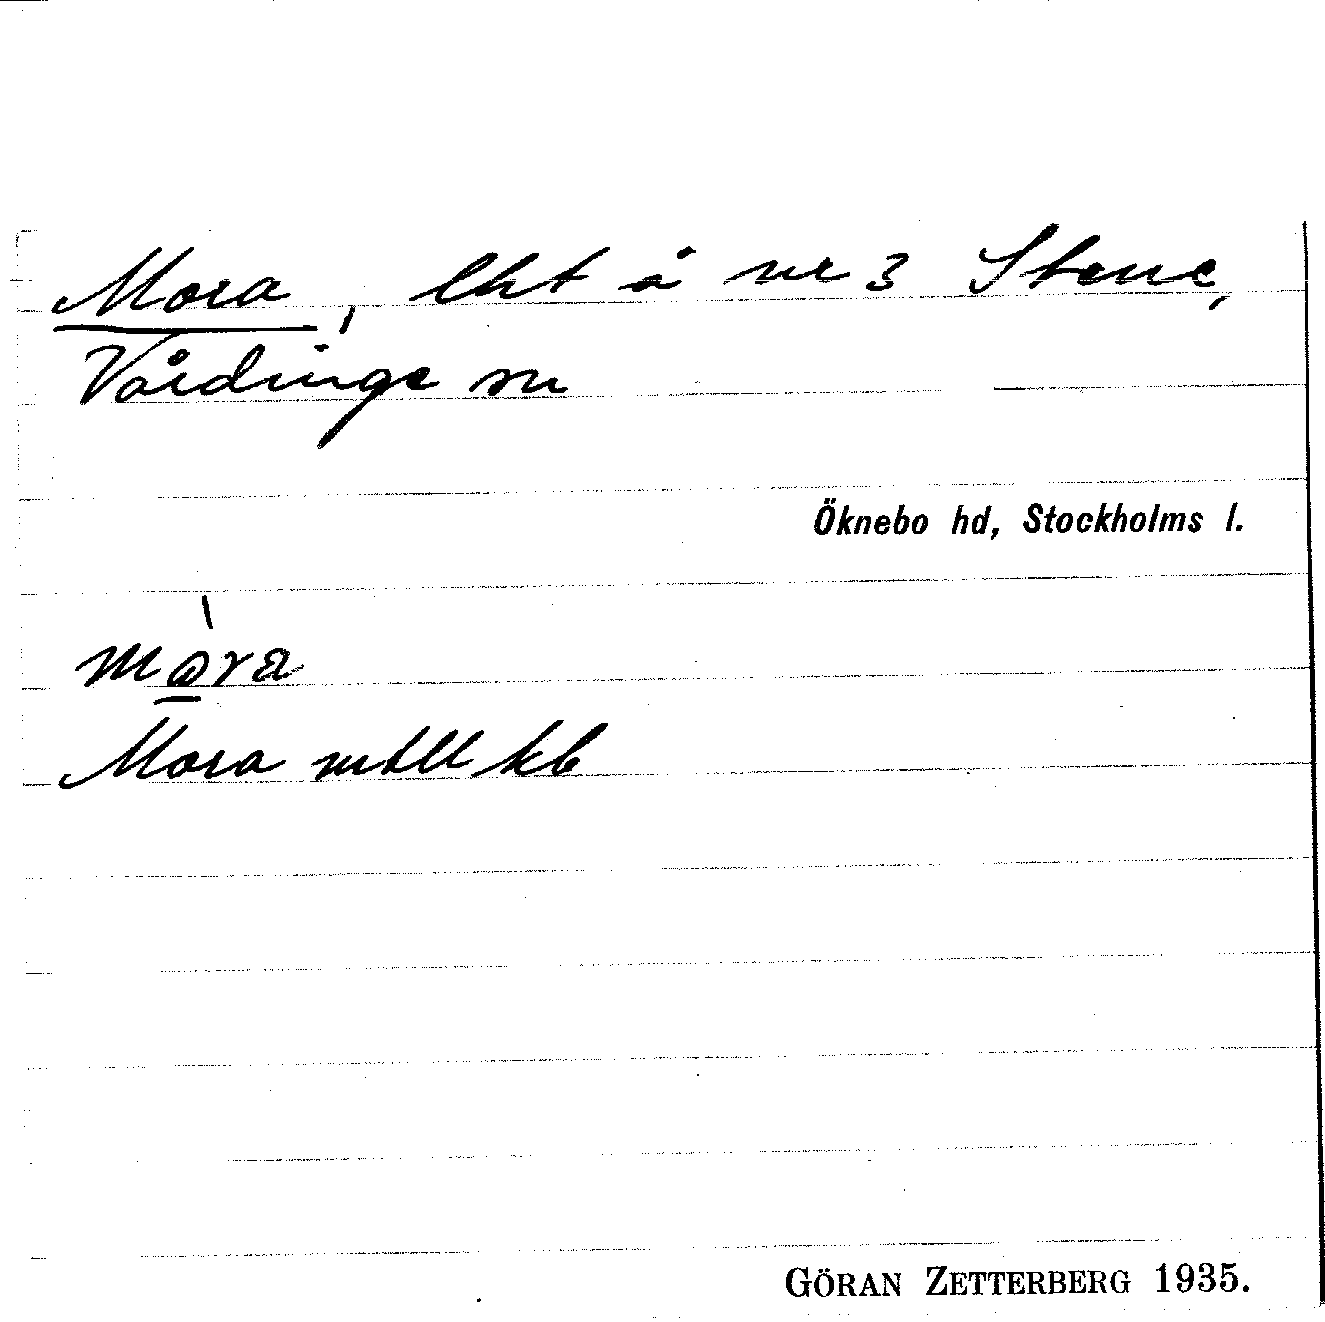 Mora, lht å nr 3 Stene,
Vårdinge sn
Öknebo hd, Stockholms l.
mo̱̍ra
Mora mtll kb
GÖRAN ZETTERBERG 1935.